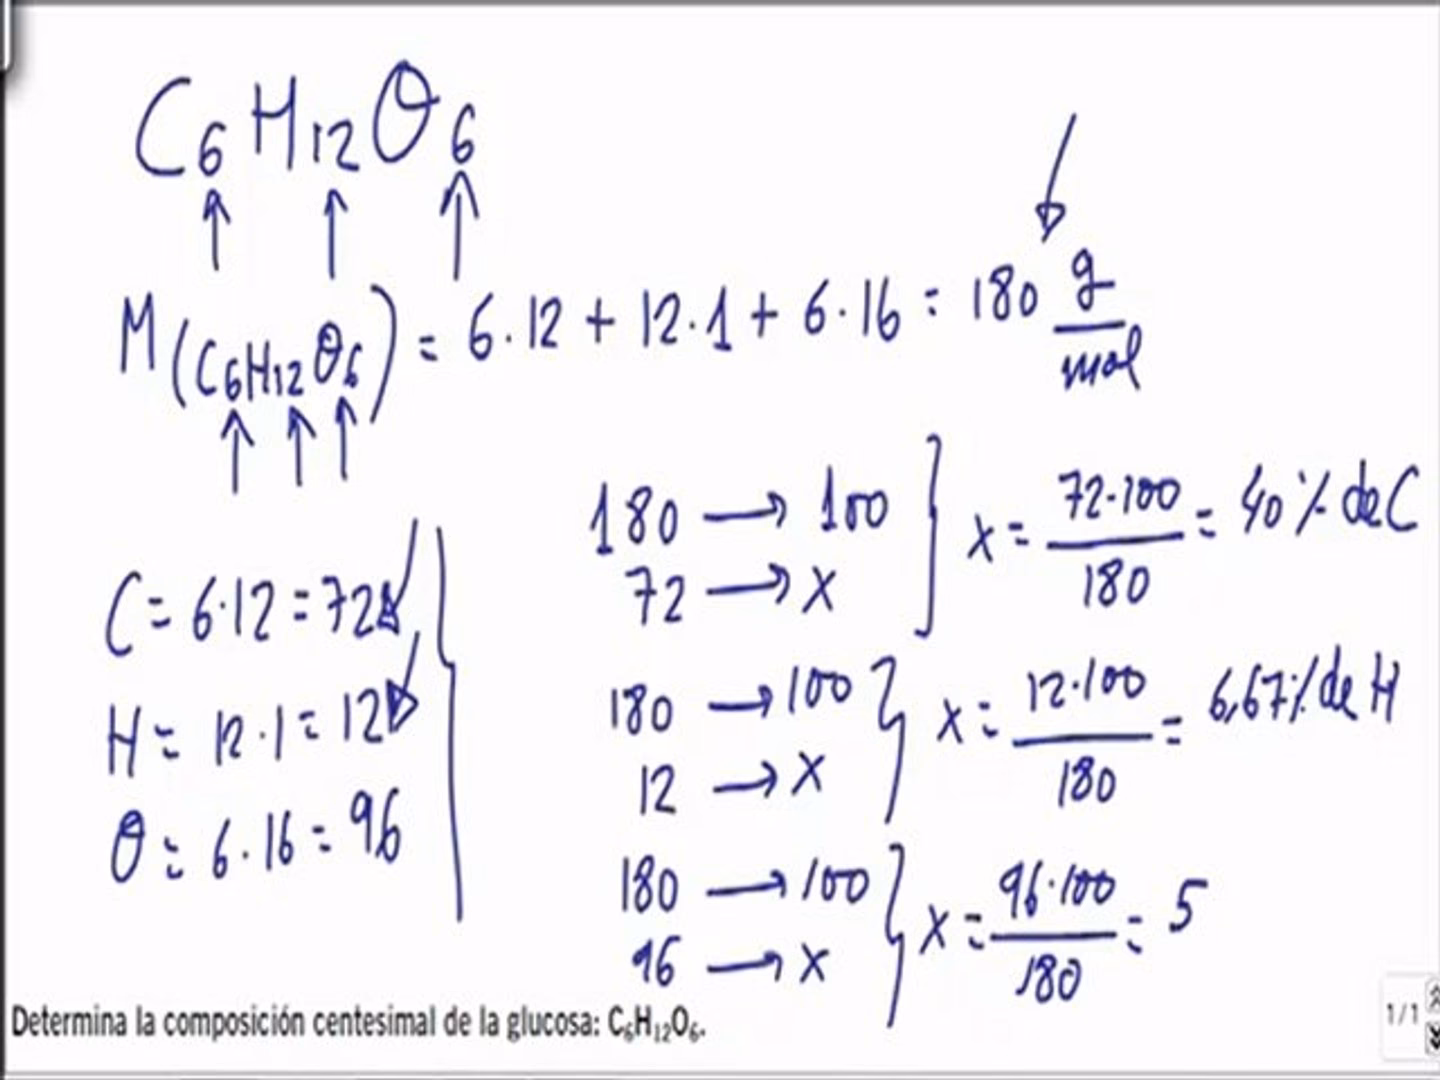 C₆H₁₂O₆
M(C₆H₁₂O₆) = 6·12 + 12·1 + 6·16 = 180 g/mol
180 → 100
72 → x
x = 72·100/180 = 40% de C
C = 6·12 = 72
H = 12·1 = 12
O = 6·16 = 96
180 → 100
12 → x
x = 12·100/180 = 6,67% de H
180 → 100
96 → x
x = 96·100/180 = 5
Determina la composición centesimal de la glucosa: C₆H₁₂O₆.
1/1